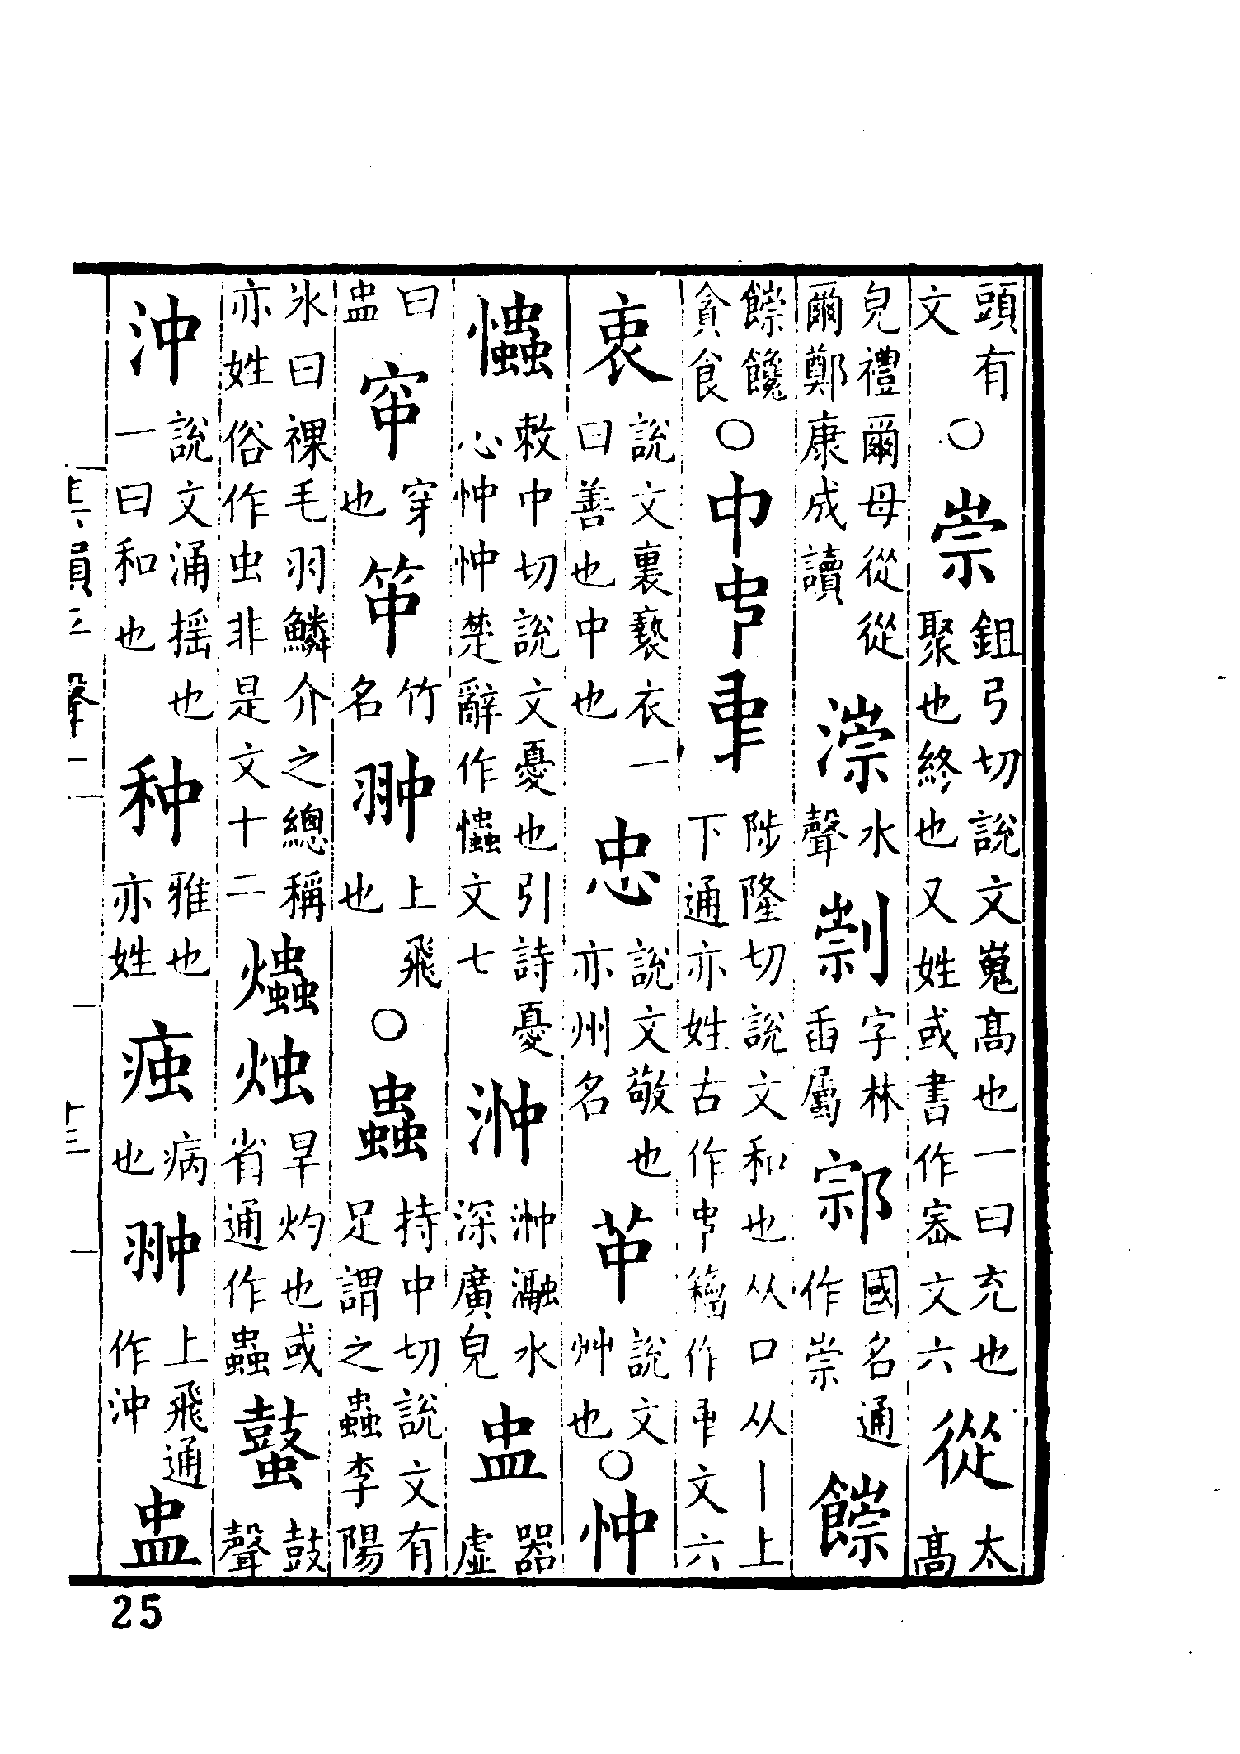 頭有文○崇鉏弓切說文嵬高也一曰充也聚也終也又姓或書作崈文六從太高
皃禮爾母從從爾鄭康成讀漴水聲字林臿屬國名通作崇
饞貪食○中𠁧𠁩陟隆切說文和也从口从丨上下通亦姓古作𠁧籒作𠁩文六
衷說文裏褻衣一曰善也中也忠說文敬也亦州名說文艸也○忡
𢥞敕中切說文憂也引詩憂心忡忡楚辭作𢥞文七浺浺瀜水深廣皃盅器虛
曰盅穿也竹名翀上飛也○蟲持中切說文有足謂之蟲李陽
氷曰裸毛羽鱗介之總稱亦姓俗作虫非是文十二爞烛旱灼也或省通作蟲鼓聲
沖說文涌搖也一曰和也种稚也亦姓痋病也翀上飛通作沖盅
25